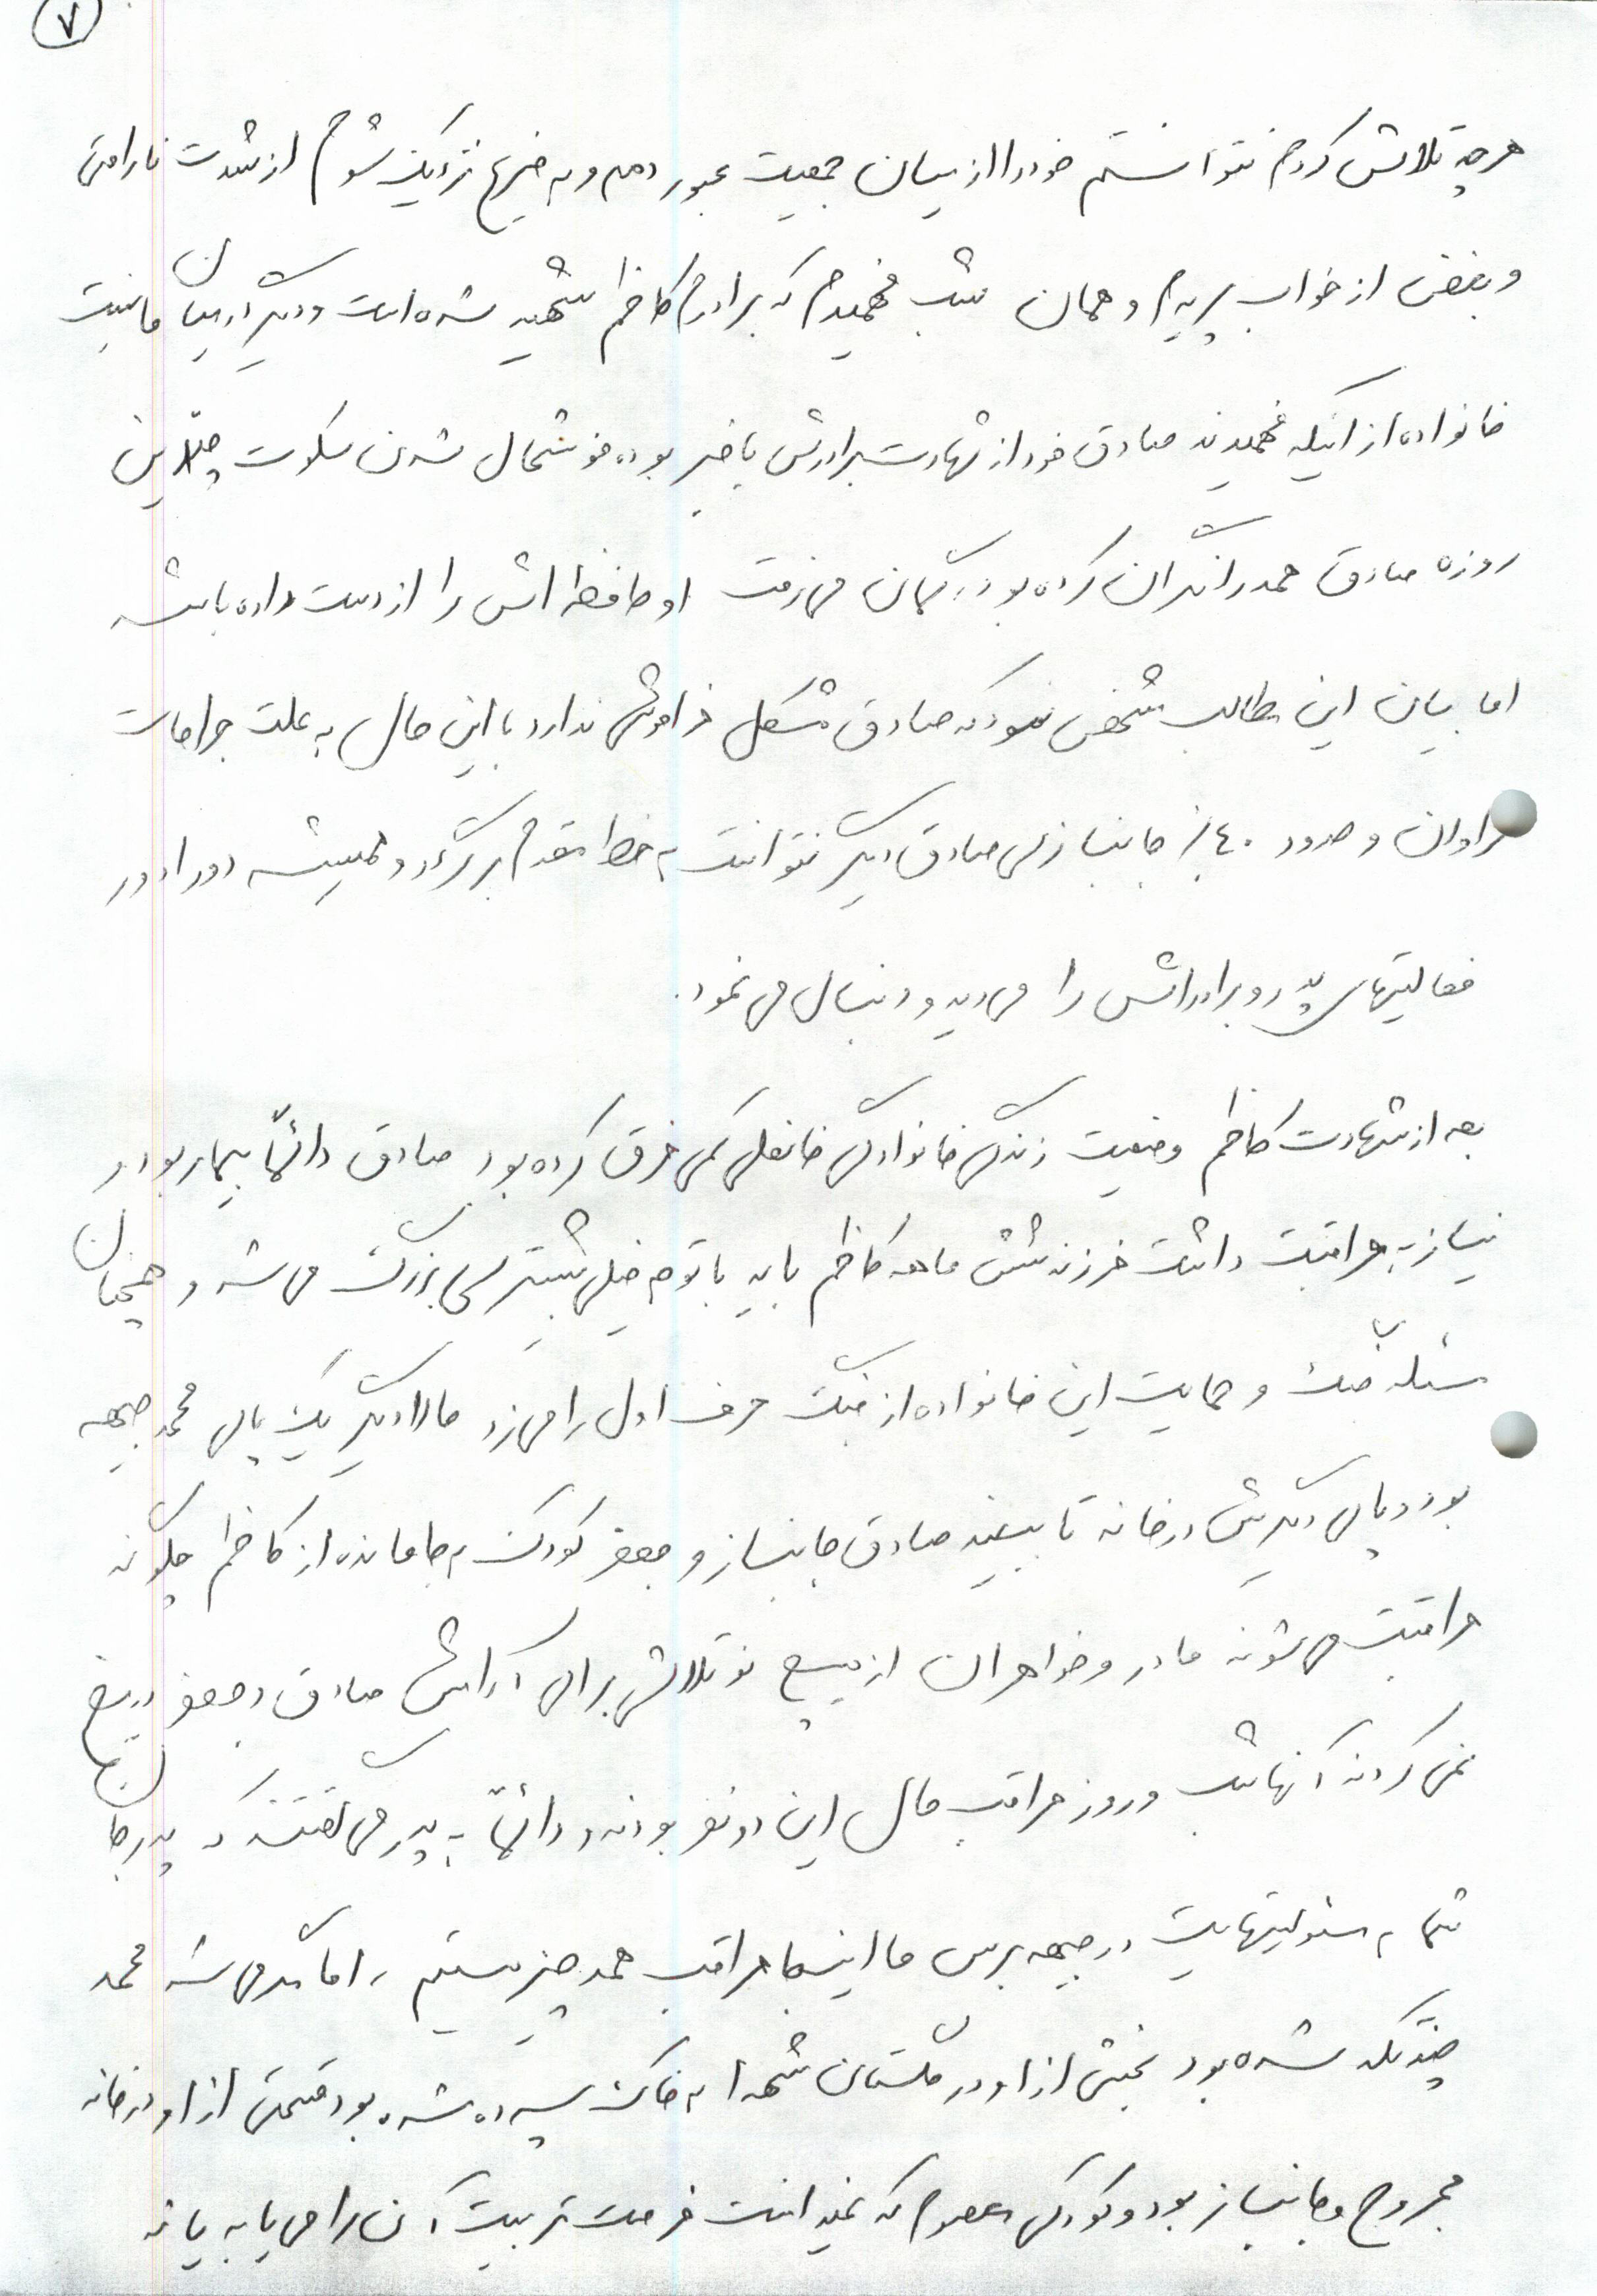 ۷
هرچه تلاش کردم نتوانستم خود را از میان جمعیت عبور دهم و به ضریح نزدیک شوم از شدت ناراحتی
و بغض از خواب پریدم و همان شب فهمیدم که برادرم کاظم شهید شده است و دیگر در میان ما نیست
خانواده از اینکه فهمیدند صادق خود از شهادت برادرش باخبر بوده خوشحال شدن سکوت چندین
روزه صادق همه را نگران کرده بود. گمان می رفت او حافظه اش را از دست داده باشد
اما بیان این مطالب مشخص نمود که صادق مشکل فراموشی ندارد با این حال به علت جراحات
فراوان و حدود ۴۰٪ جانبازی صادق دیگر نتوانست به خط مقدم برگردد و همیشه دورادور
فعالیتهای پدر و برادرانش را می دید و دنبال می نمود.
بعد از شهادت کاظم وضعیت زندگی خانوادگی خانعلی کمی فرق کرده بود صادق دائماً بیمار بود و
نیاز به مراقبت داشت فرزند شش ماهه کاظم باید با توجه خیلی بیشتری بزرگ می شد و همچنان
مسئله جنگ و حمایت این خانواده از جنگ حرف اول را می زد حالا دیگر یک پای محمد جبهه
بود و پای دیگرش در خانه تا ببیند صادق جانباز و جعفر کودک به جا مانده از کاظم چگونه
مراقبت می شوند مادر و خواهران از هیچ نوع تلاشی برای آرامش صادق و جعفر دریغ
نمی کردند آنها شب و روز مراقب حال این دو نفر بودند و دائماً به پدر می گفتند که پدر جان
تمام مسئولیتهایت در جبهه برس ما اینجا مراقب همه چیز هستیم، اما مگر می شد محمد
چند تکه شده بود بخشی از او در گلستان شهدا به خاک سپرده شده بود قسمتی از او در خانه
مجروح و جانباز بود و کودکی معصوم که نمیدانست فرصت تربیت آن را می یابد یا نه